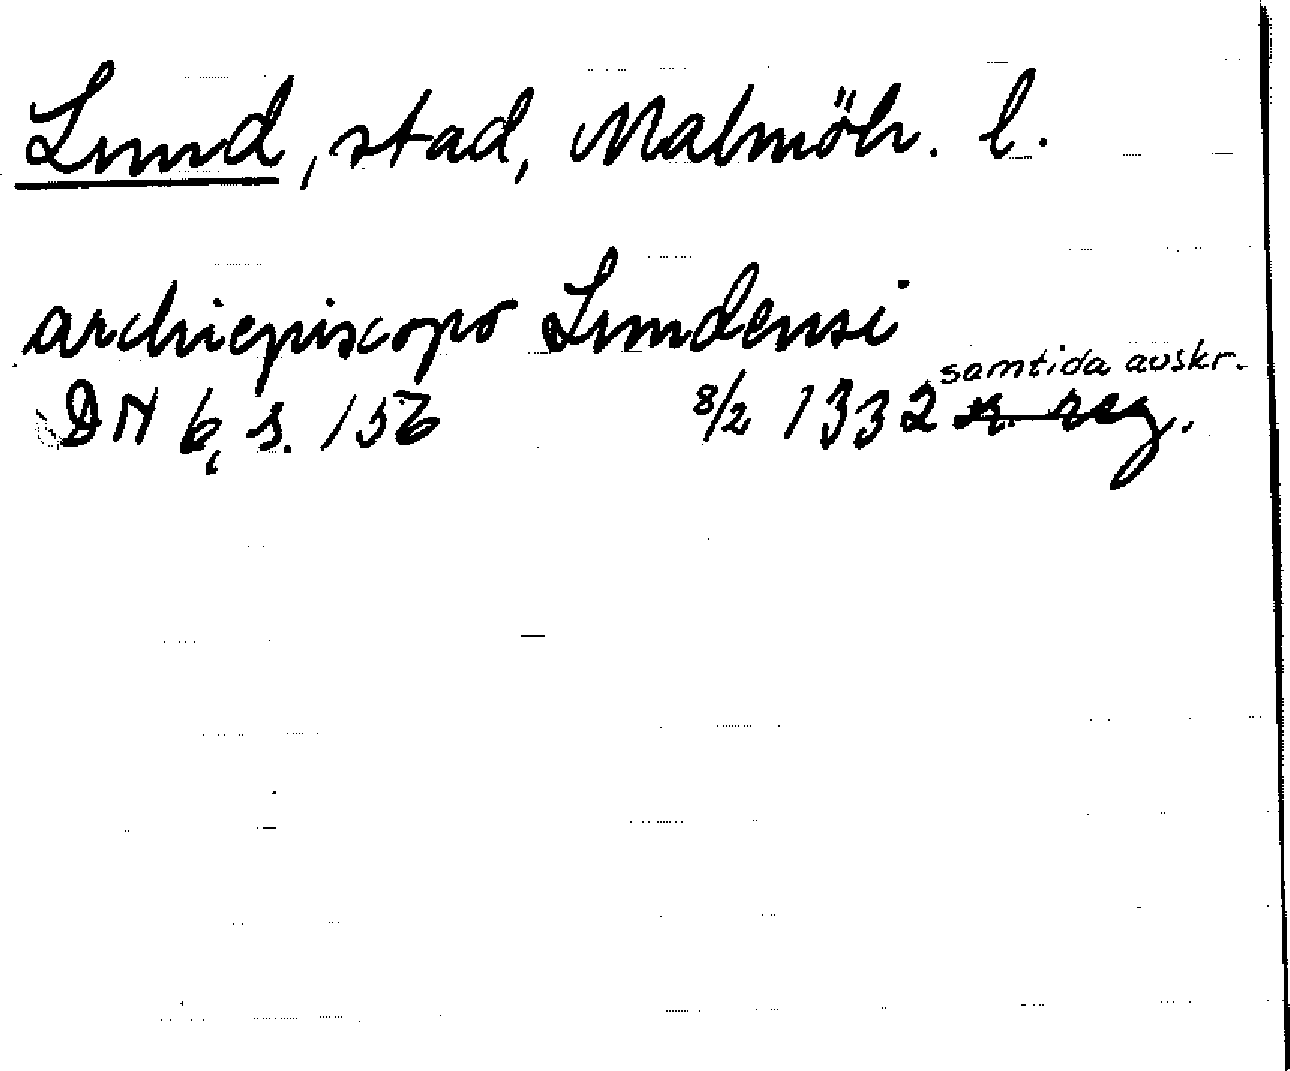 Lund, stad, Malmöh. l.
archiepiscopo Lundensi
samtida avskr.
DN 6, s. 156 8/2 1332 x. reg.